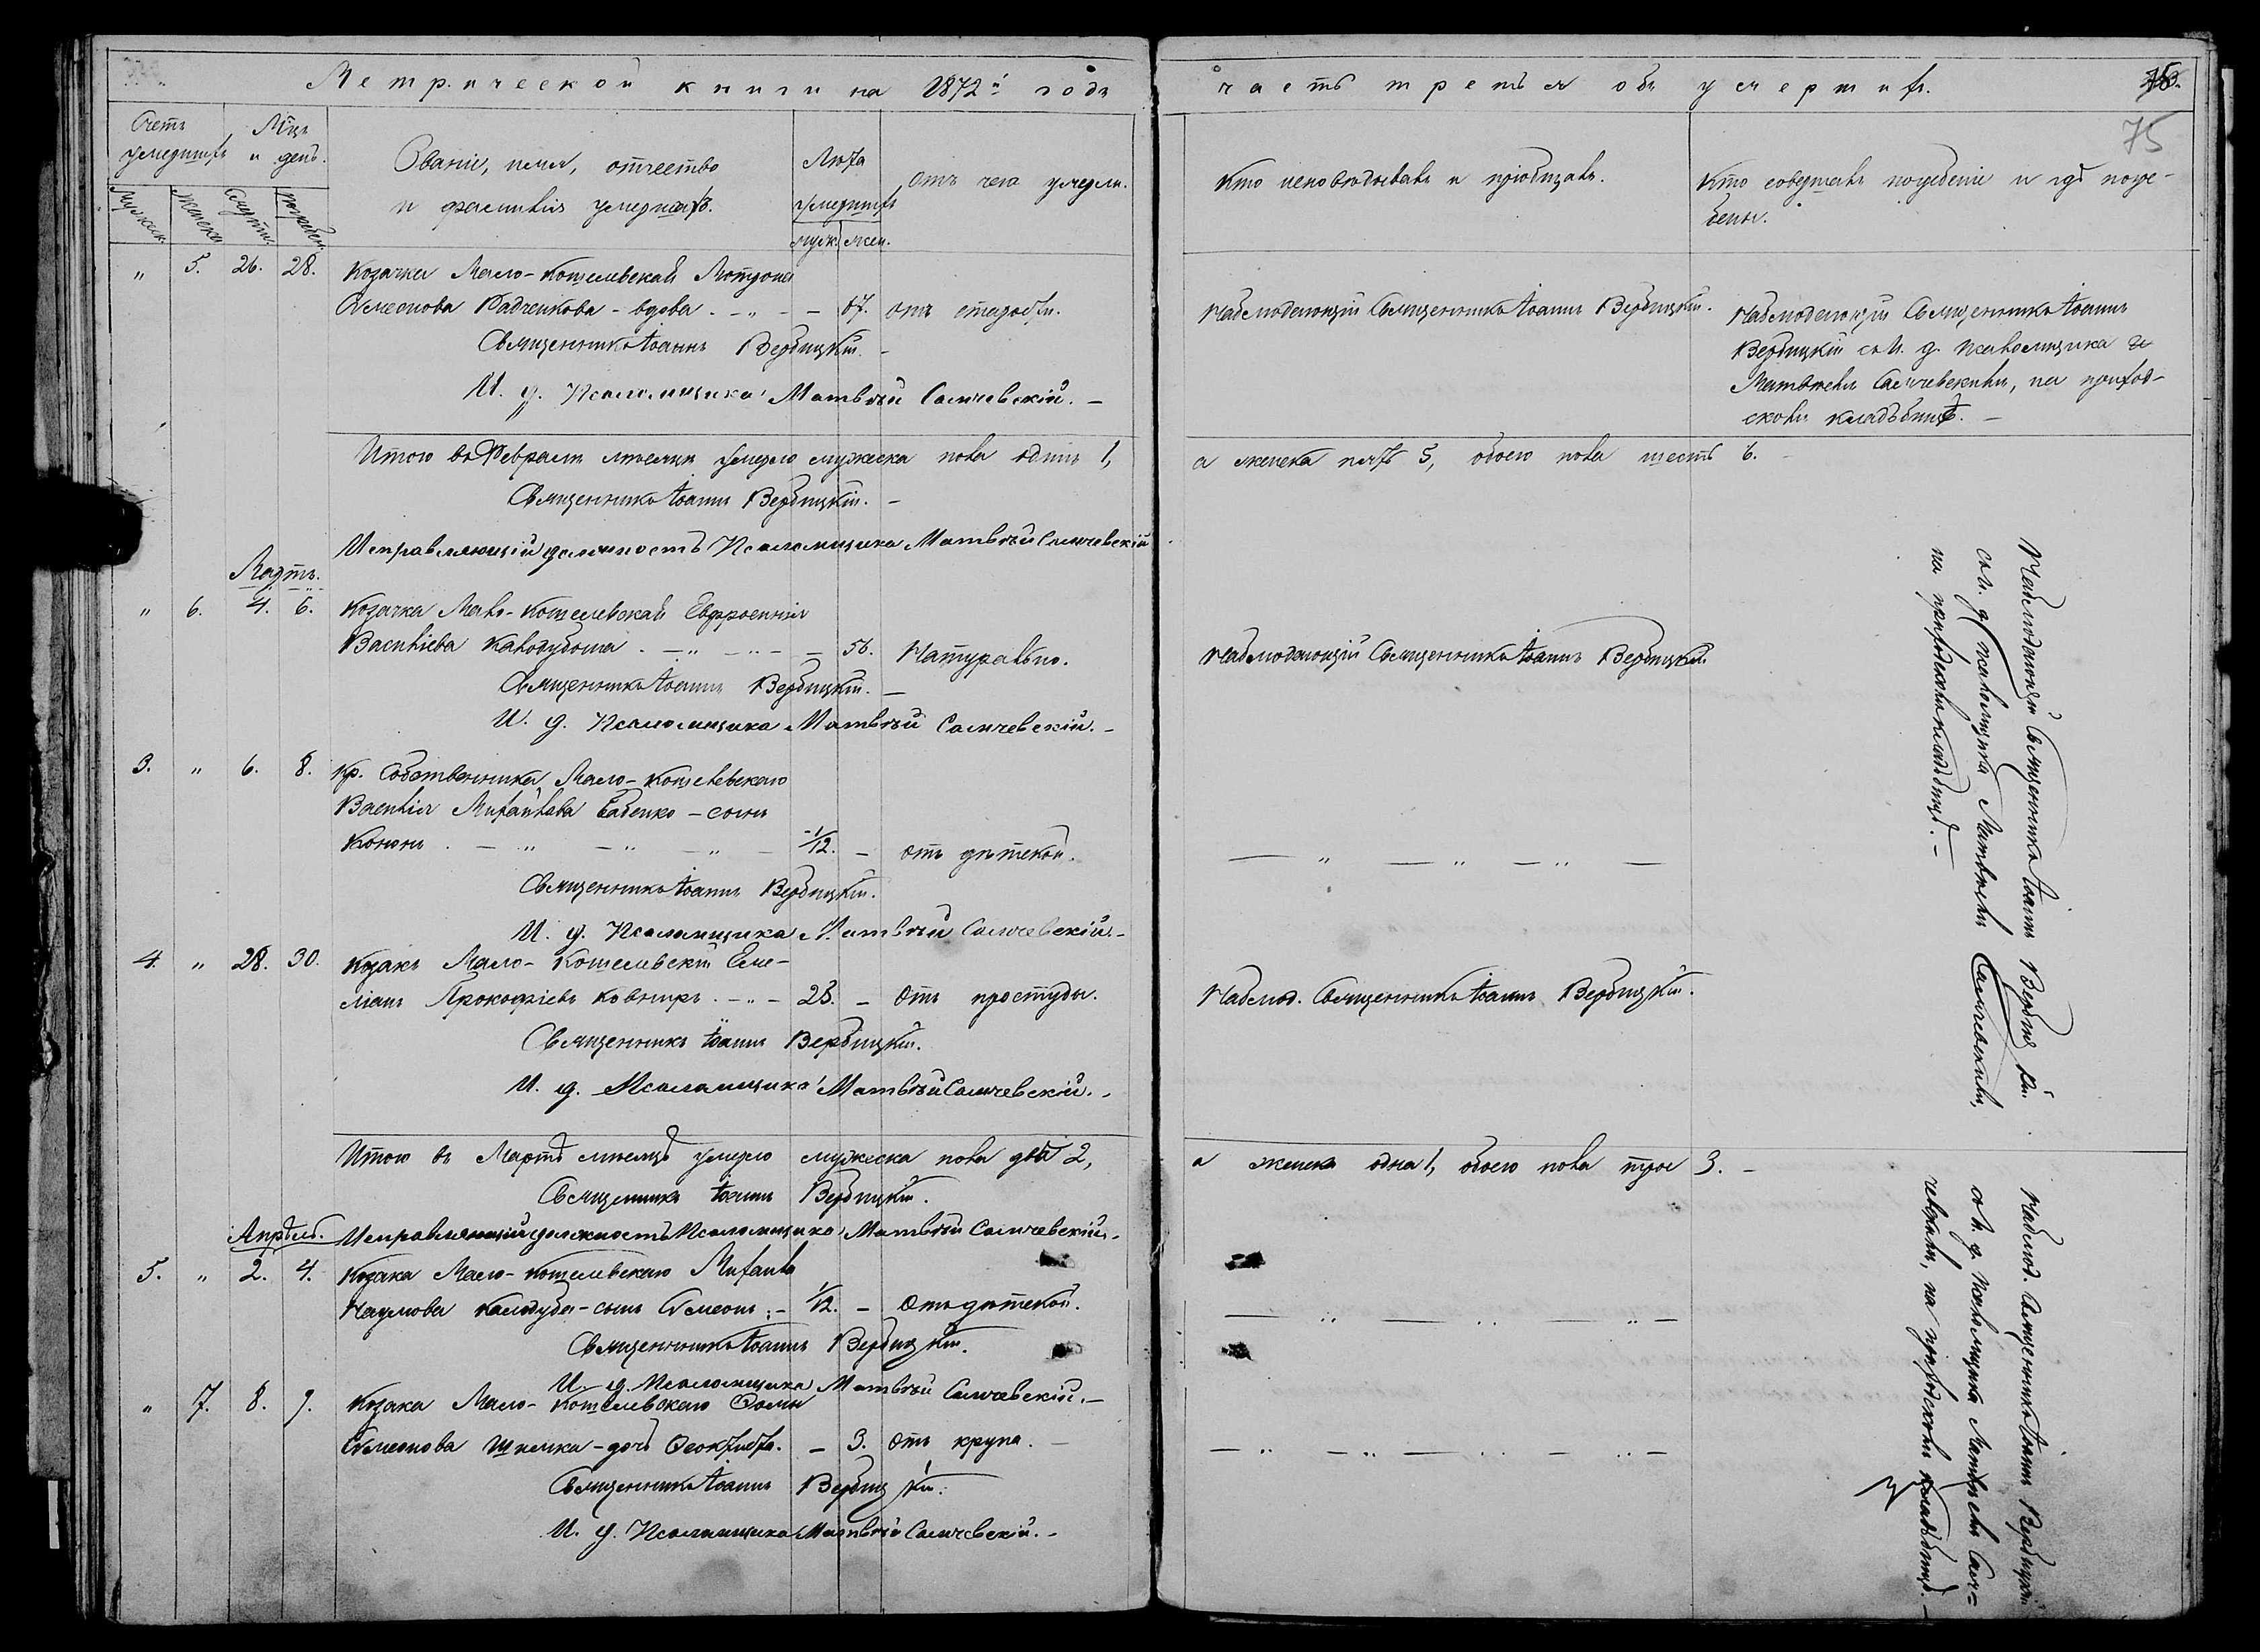 Метрической книги на 1872й годъ
часть третья объ умершихъ.
75
Счетъ умершихъ
Мцъ и день.
Званіе, имя, отчество
и фамилія умершихъ.
Лѣта
умершихъ
Отъ чего умерли.
Кто исповѣдывалъ и пріобщалъ.
Кто совершалъ погребеніе и гдѣ погре-
бены.
Мужеска
Женска
Смерти
Погребен.
муж. жен.
" 5. 26. 28. Козачка Мало-Кошелевская Мотрона
Симеонова Радченкова - вдова - 67. отъ старости.
Священникъ Іоаннъ Вербицкій. -
И. д. Псаломщика Матвѣй Самчевскій. -
Наблюдающій Священникъ Іоаннъ Вербицкій.
Наблюдающій Священникъ Іоаннъ
Вербицкій съ И. д. Псаломщика
Матвѣемъ Самчевскимъ, на приход-
скомъ кладбищѣ. -
Итого въ Февралѣ мѣсяцѣ умерло мужеска пола одинъ 1,
а женска пять 5, обоего пола шесть 6. -
Священникъ Іоаннъ Вербицкій. -
Исправляющій должность Псаломщика Матвѣй Самчевскій
Мартъ.
" 6. 4. 6. Козачка Мало-Кошелевская Евфросинія
Василіева Калодубова - 56. Натурально.
Священникъ Іоаннъ Вербицкій. -
И. д. Псаломщика Матвѣй Самчевскій. -
Наблюдающій Священникъ Іоаннъ Вербицкій.
3. " 6. 8. Кр. Собственника Мало-Кошелевскаго
Василія Михайлова Бабенко - сынъ
Кононъ - 1/12. - Отъ дѣтской.
Священникъ Іоаннъ Вербицкій.
И. д. Псаломщика Матвѣй Самчевскій. -
4. " 28. 30. Козакъ Мало-Кошелевскій Еме-
ліанъ Прокофіевъ Ковниръ - 23. - Отъ простуды.
Священникъ Іоаннъ Вербицкій.
И. д. Псаломщика Матвѣй Самчевскій. -
Наблюд. Священникъ Іоаннъ Вербицкій.
Наблюдающій Священникъ Іоаннъ Вербицкій
съ И. д. Псаломщика Матвѣемъ Самчевскимъ,
на приходскомъ кладбищѣ. -
Итого въ Мартѣ мѣсяцѣ умерло мужеска пола два 2,
а женска одна 1, обоего пола трое 3. -
Священникъ Іоаннъ Вербицкій.
Исправляющій должность Псаломщика Матвѣй Самчевскій. -
Апрѣль.
5. " 2. 4. Козака Мало-Кошелевскаго Михаила
Наумова Калодуба - сынъ Симеонъ - 1/12. - Отъ дѣтской.
Священникъ Іоаннъ Вербицкій.
И. д. Псаломщика Матвѣй Самчевскій. -
" 7. 8. 9. Козака Мало-Кошелевскаго Ѳомы
Симеонова - дочь Ѳеоктиста. - 3. Отъ крупа. -
Священникъ Іоаннъ Вербицкій.
И. д. Псаломщика Матвѣй Самчевскій. -
Наблюд. Священникъ Іоаннъ Вербицкій
съ И. д. Псаломщика Матвѣемъ Сам-
чевскимъ, на приходскомъ кладбищѣ. -